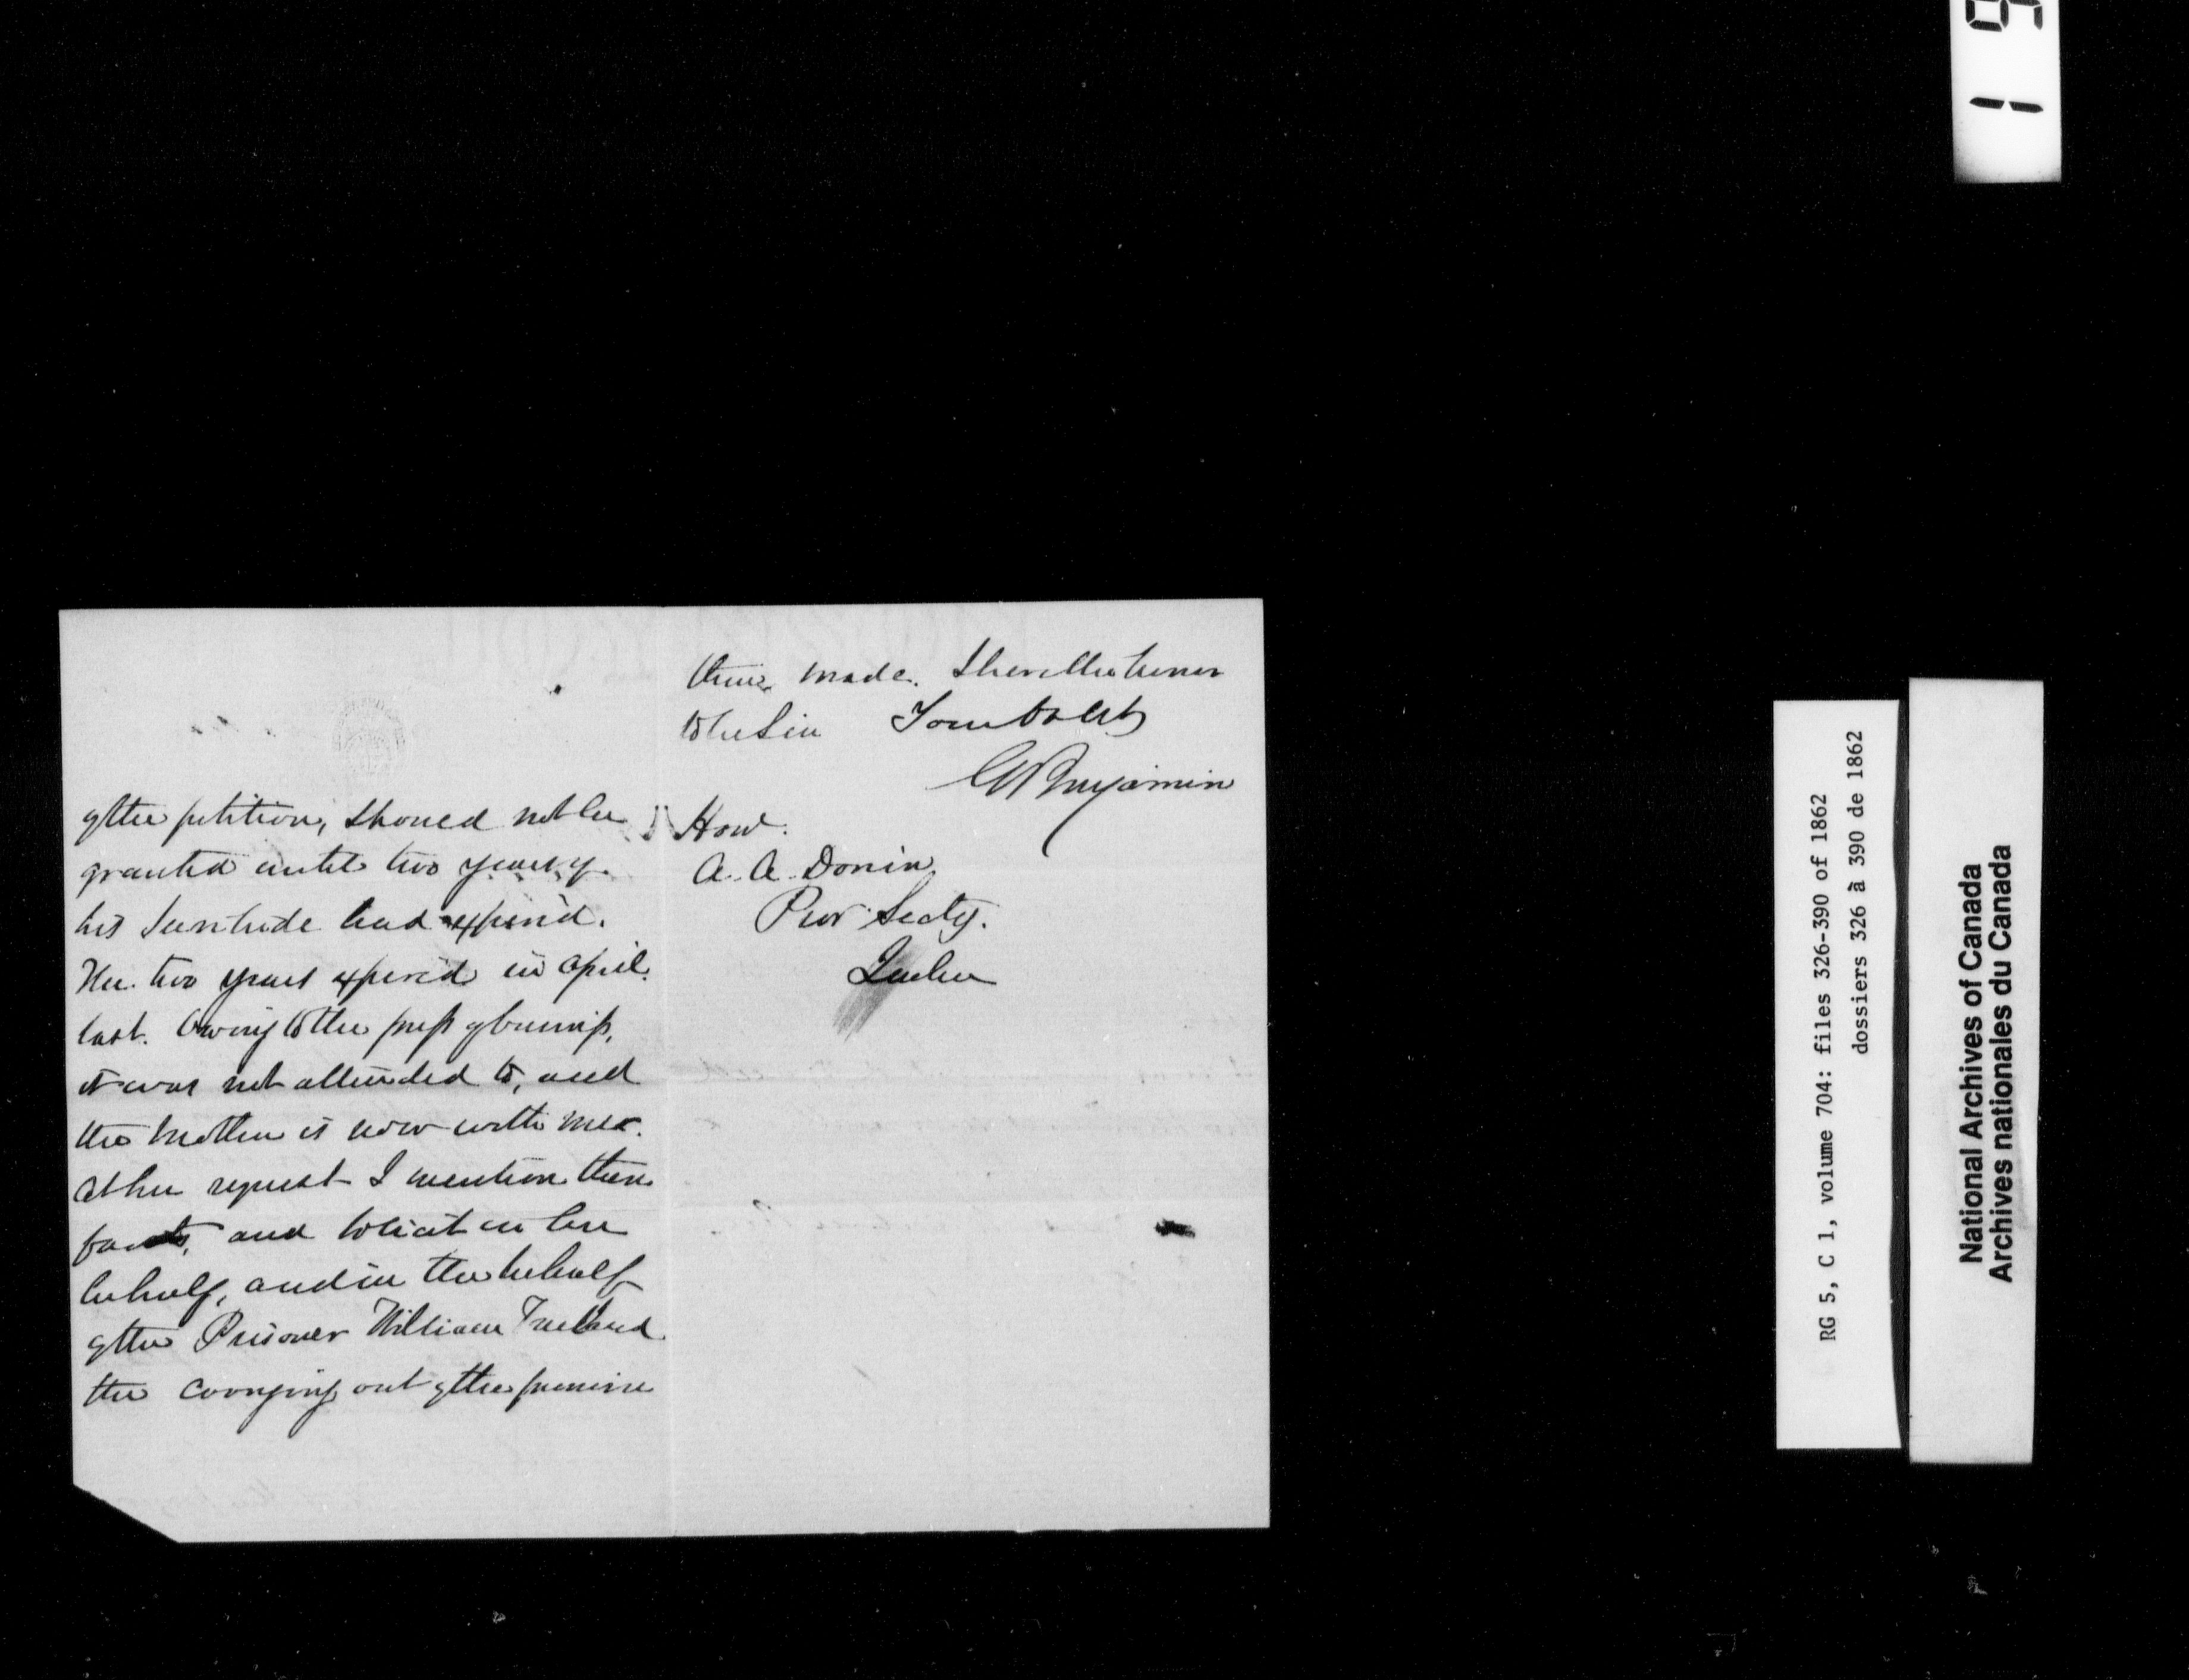 of the petition, should not be
granted until two years of
his servitude had expired.
The two years expired in April
last. Owing to the press of business,
it was not attended to, and
the mother is now with me.
At her request I mention these
facts, and solicit in her
behalf, and in the behalf
of the Prisoner William
the carrying out of the promise
then made. I have the honor
to be Sir Your ob Svt
G Benjamin
Hon.
A. A. Dorion
Prov Secty.
Quebec
RG 5, C 1, volume 704: files 326-390 of 1862
dossiers 326 à 390 de 1862
National Archives of Canada
Archives nationales du Canada